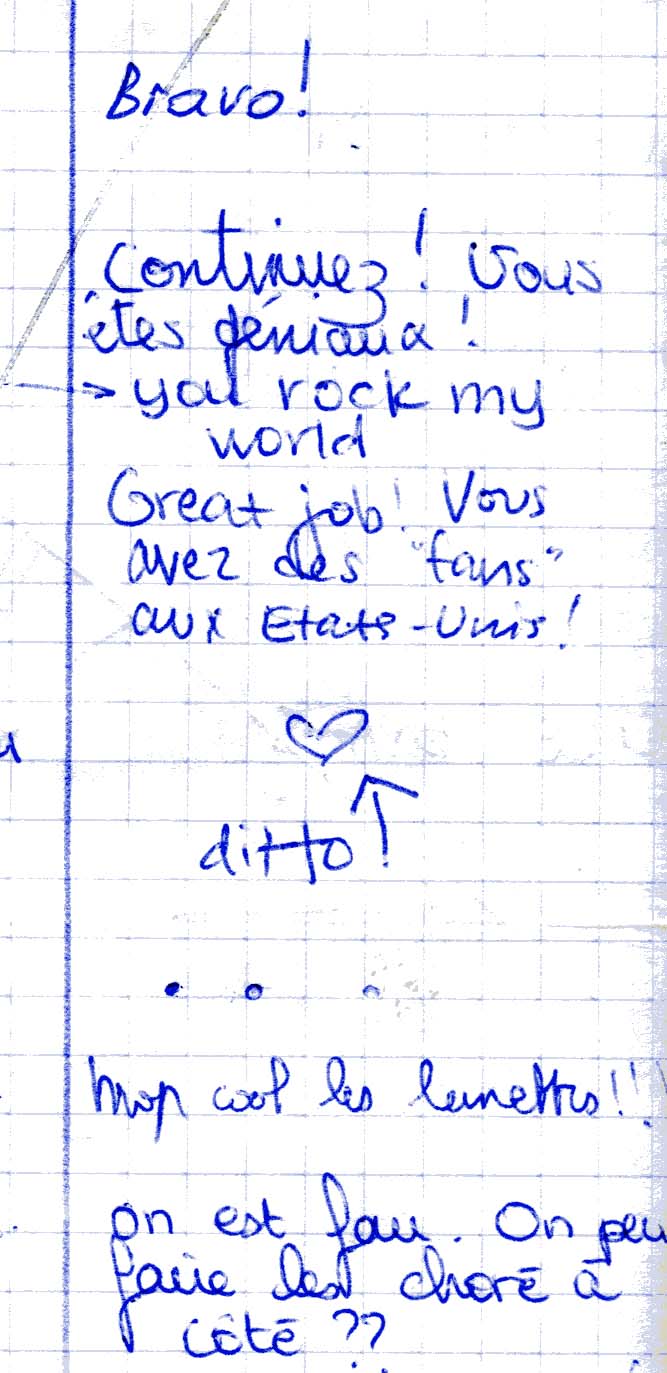 Bravo!
Continuez! Vous
êtes géniaux!
-> you rock my
world
Great job! Vous
avez des "fans"
aux Etats-Unis!
♡
ditto ↑
. . .
trop cool les lunettes!!!
on est fan. On peu
faire les choré à
côté ??